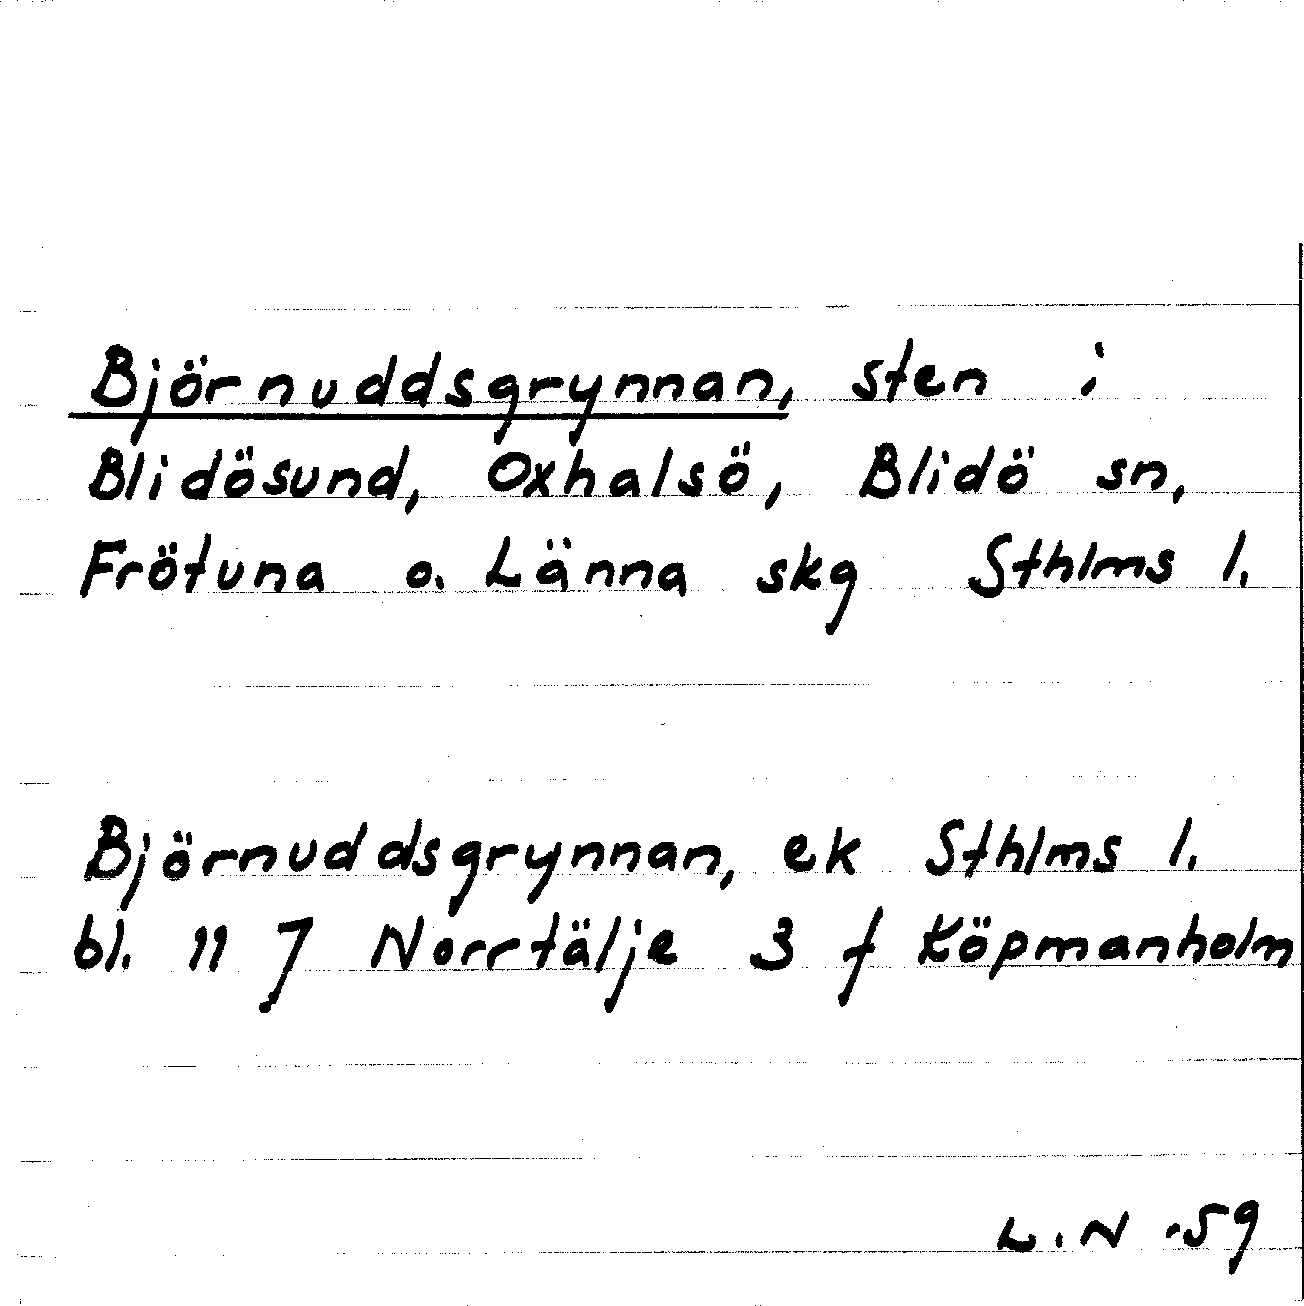 Björnuddsgrynnan, sten i
Blidösund, Oxhalsö, Blidö sn,
Frötuna o. Länna skg Sthlms l.
Björnuddsgrynnan, ek Sthlms l.
bl. 11 J Norrtälje 3 f Köpmanholm
L.N -59